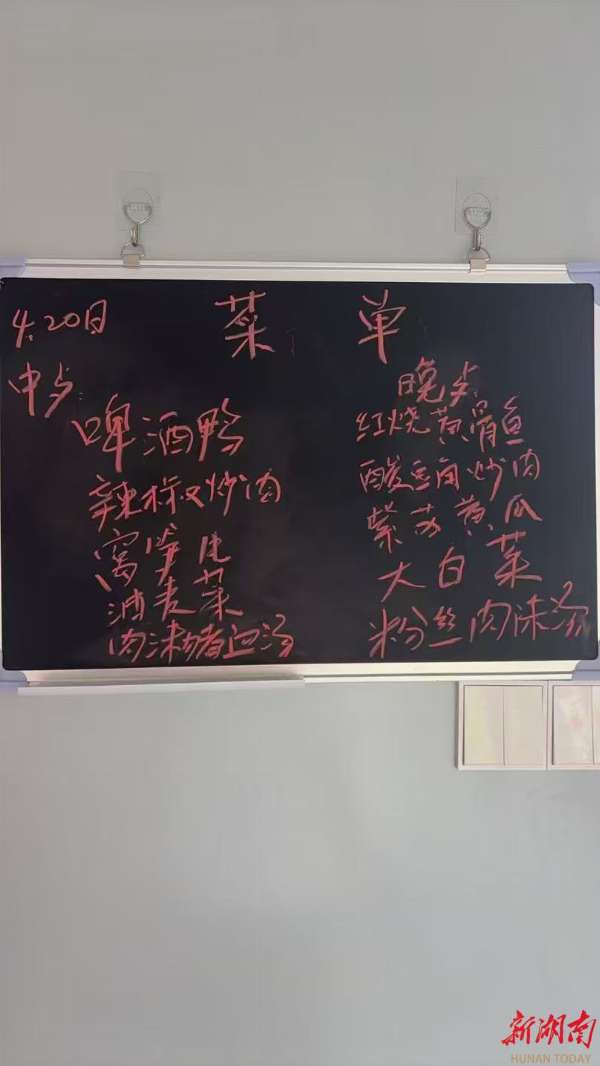 4.20日 菜 单
中歺:
啤酒鸭
辣椒炒肉
窝笋片
油麦菜
肉沫猪血汤
晚歺:
红烧黄骨鱼
酸豆角炒肉
紫苏黄瓜
大白菜
粉丝肉沫汤
新湖南
HUNAN TODAY